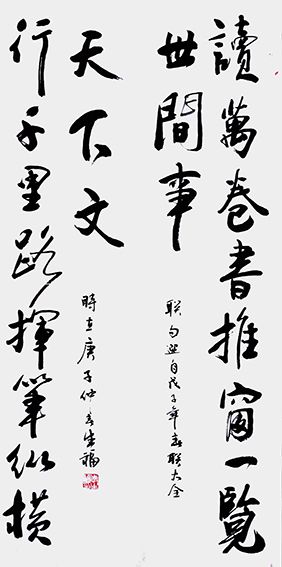 讀萬卷書推窗一覽
世間事
联句选自戊子年春联大全
行千里路揮筆纵横
天下文
時在庚子仲春福